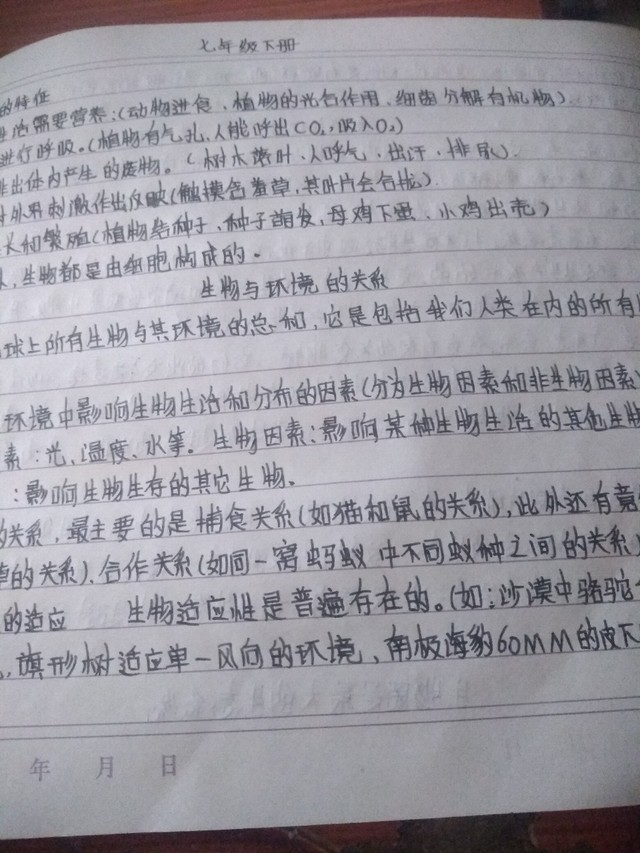 七年级下册
的特征
生活需要营养:(动物进食、植物的光合作用、细菌分解有机物)
进行呼吸。(植物有气孔,人能呼出CO₂,吸入O₂)
出体内产生的废物。(树木落叶、人呼气、出汗、排尿).
外界刺激作出反映(触摸含羞草,其叶片会合拢).
长和繁殖(植物结种子、种子萌发,母鸡下蛋、小鸡出壳)
,生物都是由细胞构成的。
生物与环境的关系
球上所有生物与其环境的总和,它是包括我们人类在内的所有
环境中影响生物生活和分布的因素(分为生物因素和非生物因素
素:光、温度、水等。生物因素:影响某种生物生活的其他生物
:影响生物生存的其它生物、
的关系,最主要的是捕食关系(如猫和鼠的关系),此外还有竞
的关系).合作关系(如同一窝蚂蚁中不同蚁种之间的关系)
的适应 生物适应性是普遍存在的。(如:沙漠中骆驼
,旗形树适应单一风向的环境、南极海豹60MM的皮下
年 月 日